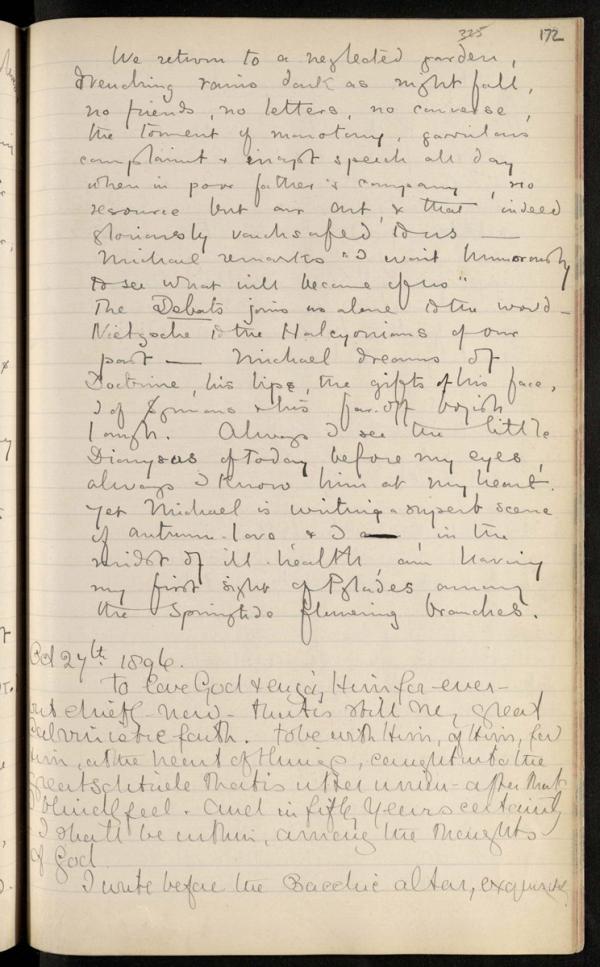 325 172
We return to a neglected garden,
drenching rains dark as night fall,
no friends, no letters, no converse,
the torment of monotony, garrulous
complaint & inapt speech all day
when in poor father's company, no
resource but our Art, & that indeed
gloriously vouchsafed to us —
Michael remarks "I wait humorously
to see what will become of us"
The Debats joins us alone to the world —
Nietzsche to the Halcyonians of our
past — Michael dreams of
Doctrine, his lips, the gifts of his face,
I of & his far-off boyish
laugh. Always I see the little
Dionysus of Today before my eyes,
always I know him at my heart.
Yet Michael is writing a superb scene
of autumn-love, & I a— , in the
midst of ill-health, am having
my first sight of Pylades among
the Springtide flowering branches.
Oct 27th 1896.
To love God & enjoy Him for-ever—
but chiefly now — that is still my great
Calvinistic faith. To be with Him, of Him, for
Him, at the heart of things, caught into the
great solitude that is utter union — after that
blind feel. And in fifty years certainly
I shall be within, among the thoughts
of God
I write before the Bacchic altar,